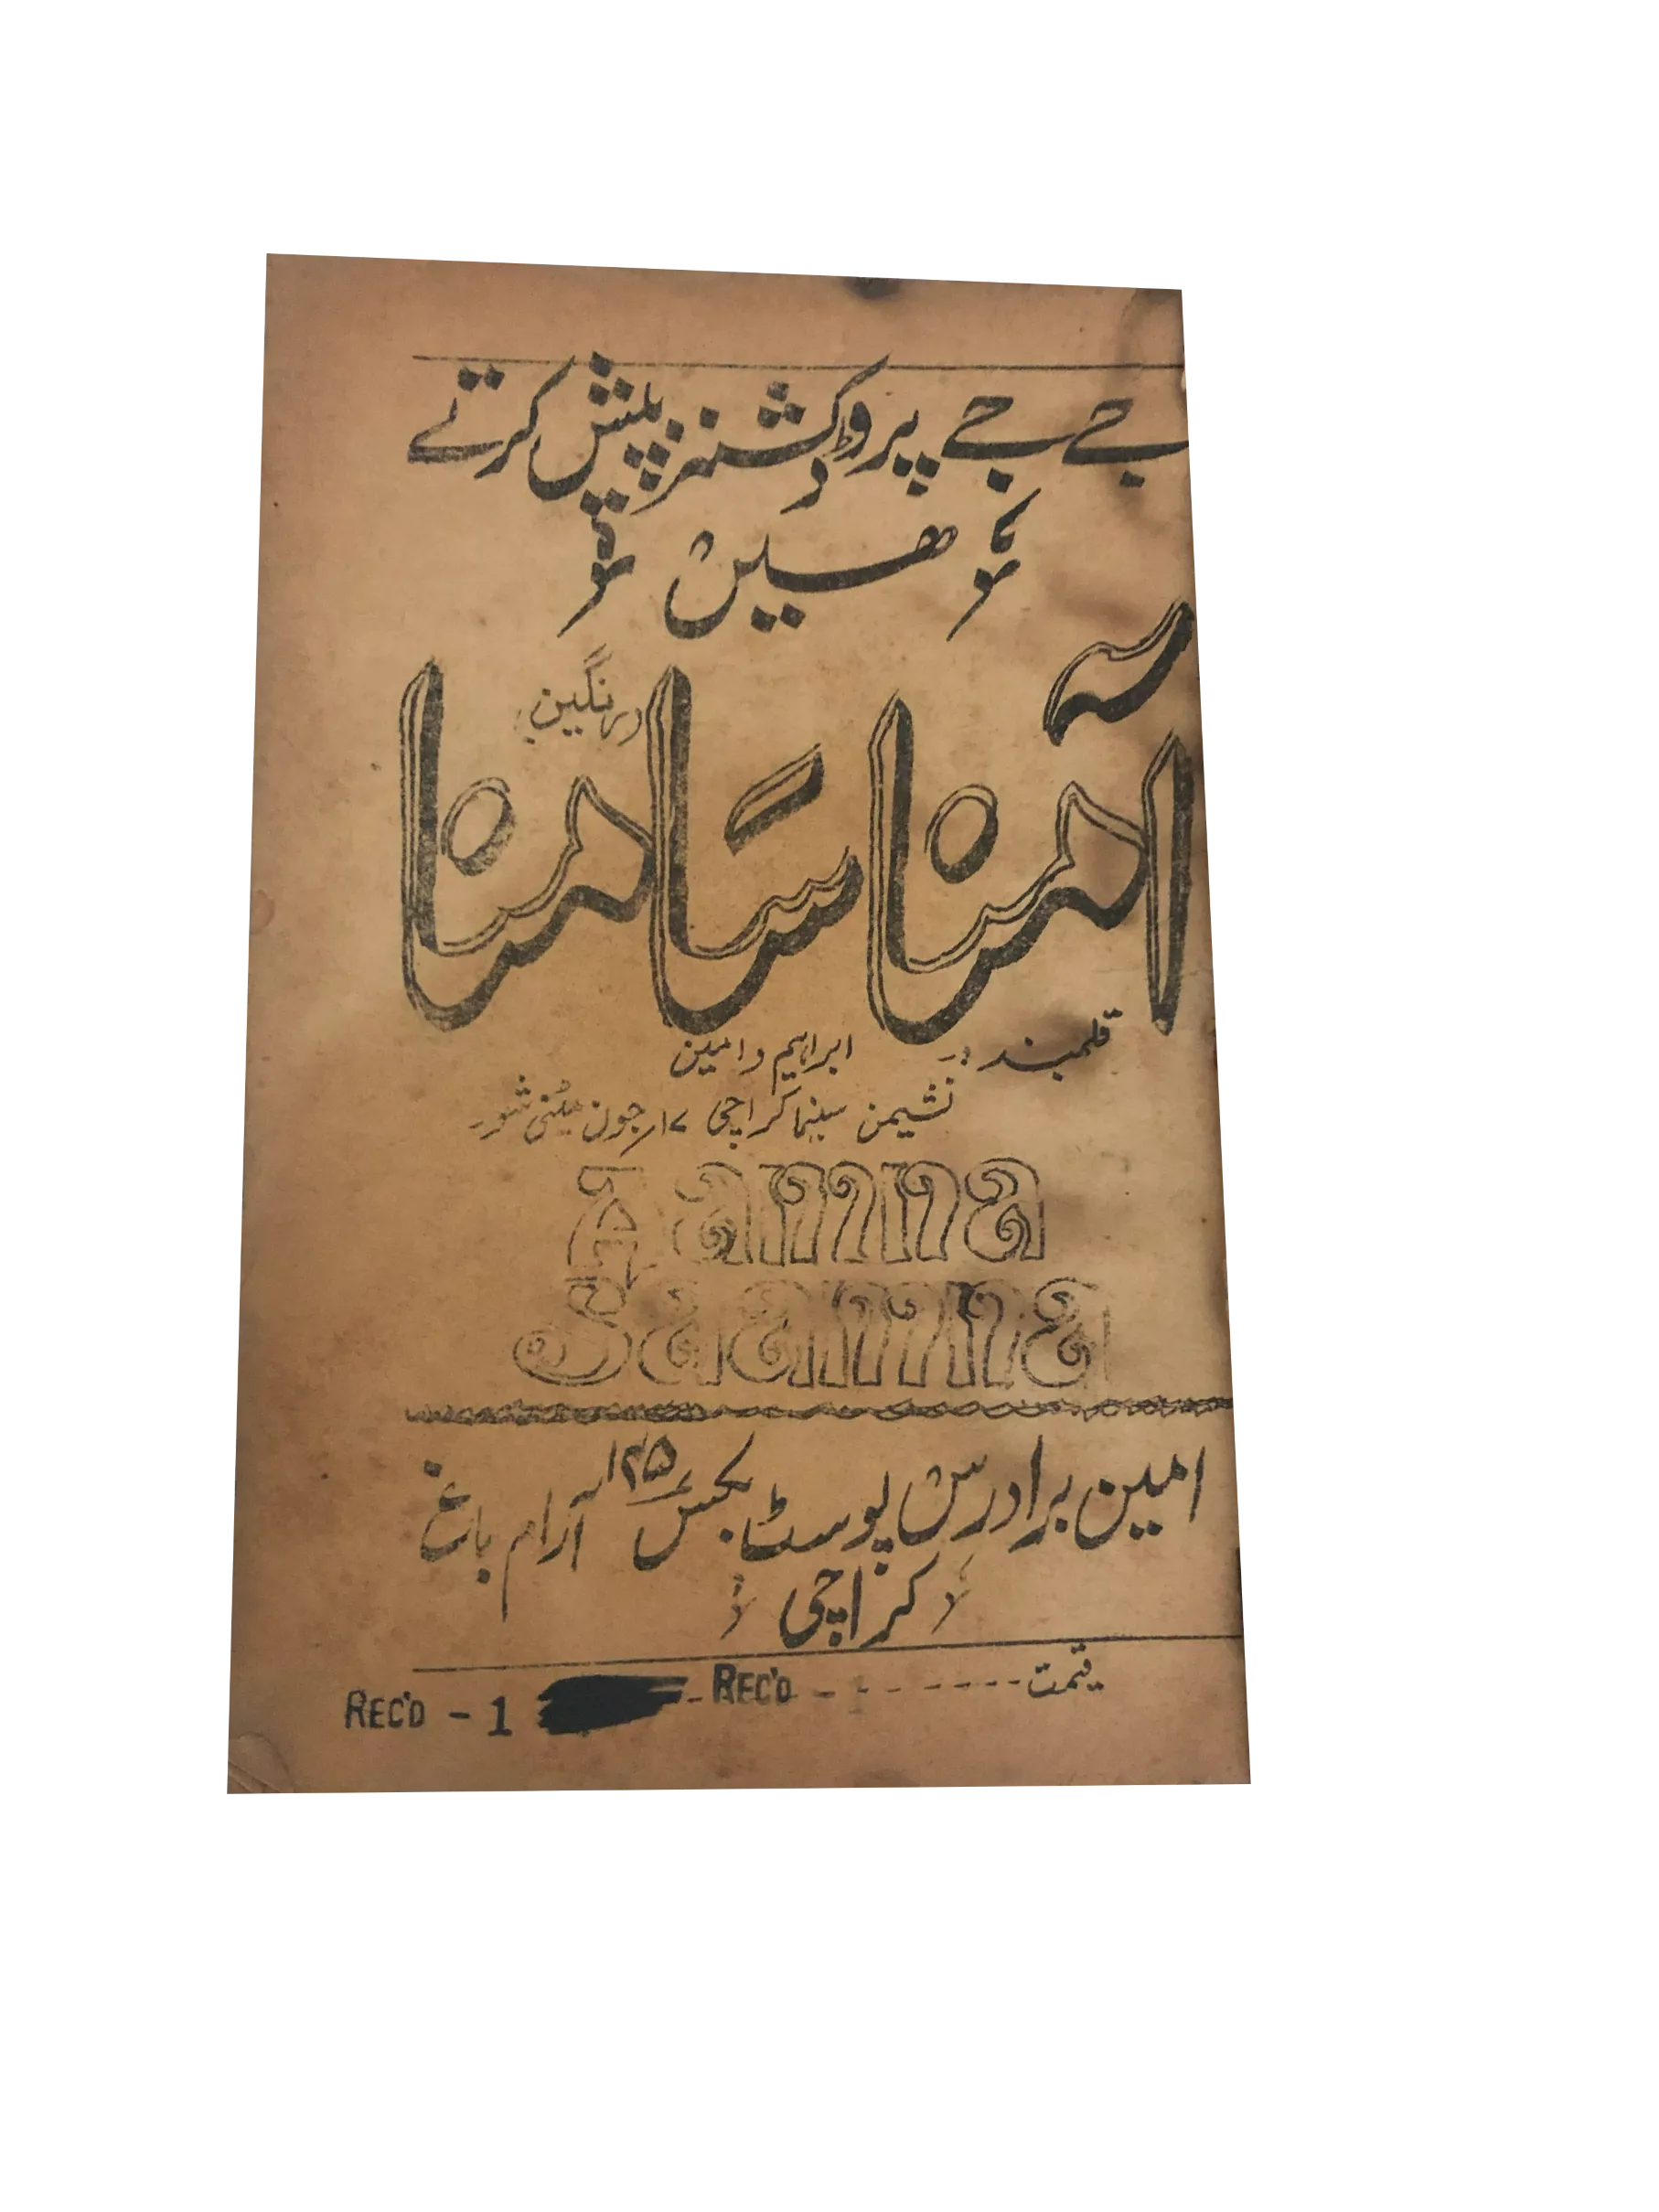 جے جے پروڈکشنز پیش کرتے
ھیں
آمنا سامنا
(رنگین)
قلمبند :۔ ابراہیم و امین
نشیمن سینما کراچی ۱۷؍جون میٹنی شو
Aamna
Saamna
امین برادرس پوسٹ بکس ۱۲۵ آرام باغ
کراچی
قیمت ------- REC'D -
REC'D - 1